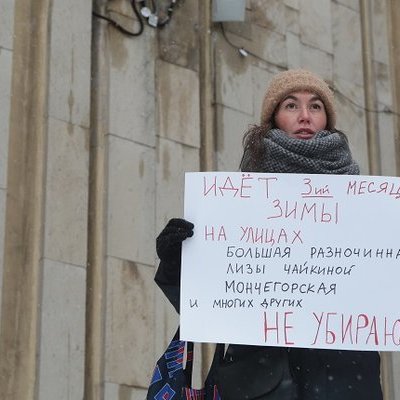 ИДЁТ 3ИЙ МЕСЯЦ
ЗИМЫ
НА УЛИЦАХ
БОЛЬШАЯ РАЗНОЧИННА
ЛИЗЫ ЧАЙКИНОЙ
МОНЧЕГОРСКАЯ
И МНОГИХ ДРУГИХ
НЕ УБИРАЮ